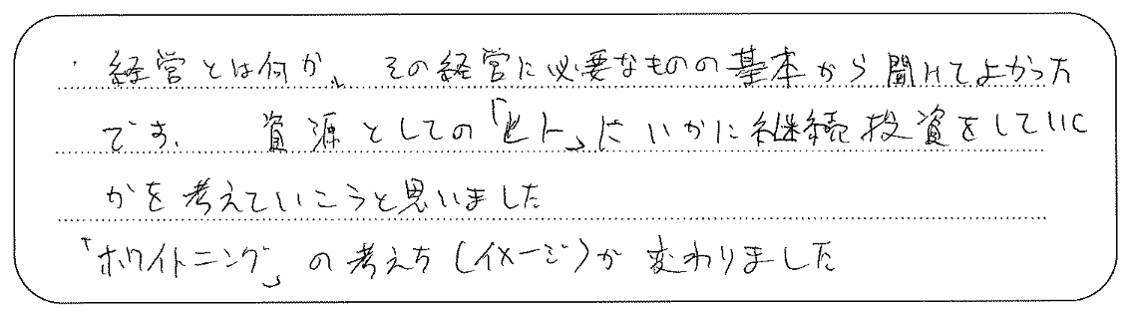 ・経営とは何か、その経営に必要なものの基本から聞けてよかった
です。 資源としての「ヒト」にいかに継続投資をしていく
かを考えていこうと思いました
「ホワイトニング」の考え方(イメージ)が変わりました